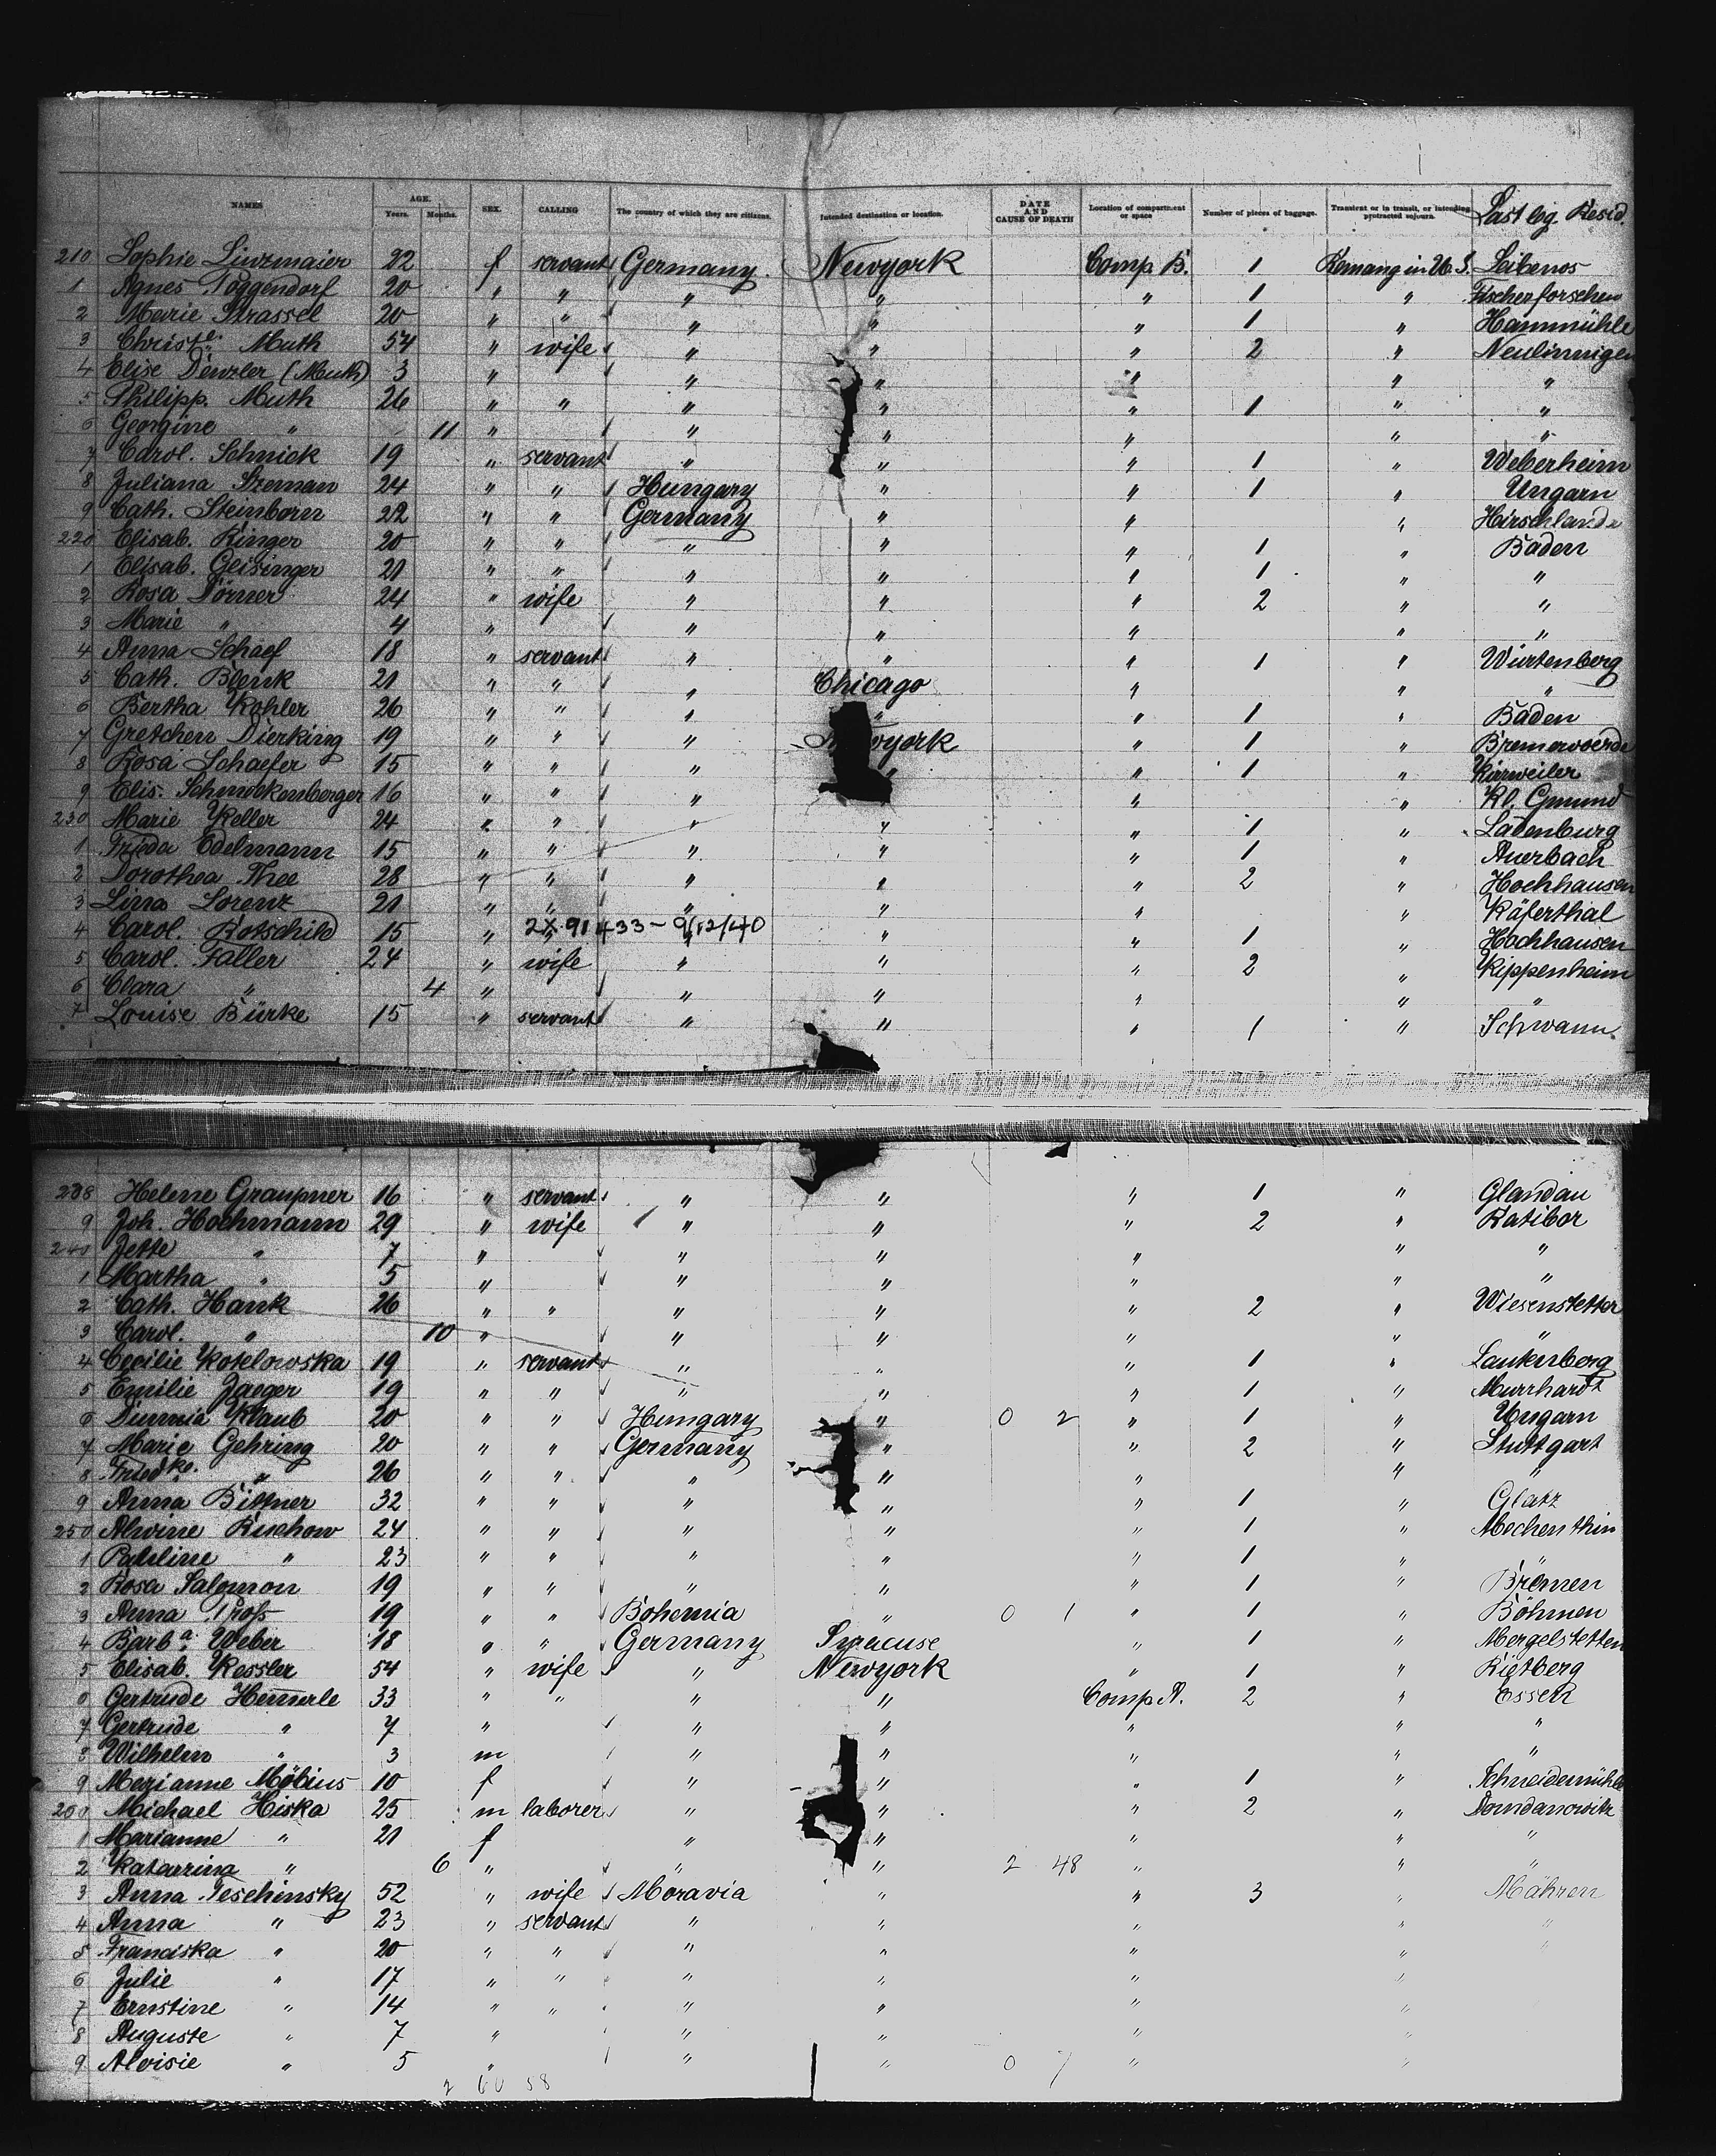 NAMES AGE. Years. Months. SEX. CALLING The country of which they are citizens. Intended destination or location. DATE AND CAUSE OF DEATH Location of compartment or space Number of pieces of baggage. Transient or in transit, or intending protracted sojourn. Last leg. Resid.
210 Sophie Linzmaier 22 f servant Germany. Newyork Comp B. 1 Remang in U. S. Leibenos
1 Agnes Poggendorf 20 " " " " " 1 " Fischerforschen
2 Marie Strassel 20 " " " " " 1 " Hammühle
3 Christe. Muth 54 " wife " " " 2 " Neulinnigen
4 Elise Denzler (Muth) 3 " " " " " "
5 Philipp. Muth 26 " " " " " 1 " "
6 Georgine " 11 " " " " " "
7 Carol. Schnick 19 " servant " " " 1 " Weberheim
8 Juliana Szeman 24 " " Hungary " " 1 " Ungarn
9 Cath. Steinborn 22 " " Germany " " " Hirschlande
220 Elisab. Ringer 20 " " " " " 1 " Baden
1 Elisab. Geisinger 21 " " " " " 1 " "
2 Rosa Dörner 24 " wife " " " 2 " "
3 Marie " 4 " " " " " "
4 Anna Schaef 18 " servant " " " 1 " Würtenberg
5 Cath. Blenk 21 " " " Chicago " " "
6 Bertha Kohler 26 " " " " " 1 " Baden
7 Gretchen Dierking 19 " " " Newyork " 1 " Bremervoerde
8 Rosa Schaefer 15 " " " " " 1 " Kirrweiler
9 Elis. Schmockenberger 16 " " " " " Kl. Gmund
230 Marie Keller 24 " " " " " 1 " Ladenburg
1 Frieda Edelmann 15 " " " " " 1 " Auerbach
2 Dorothea Thee 28 " " " " " 2 " Hochhausen
3 Lina Lorenz 21 " " " " " " Käferthal
4 Carol. Rotschild 15 " 2X-91433-9/12/40 " " " 1 " Hochhausen
5 Carol. Faller 24 " wife " " " 2 " Kippenheim
6 Clara " 4 " " " " " "
7 Louise Bürke 15 " servant " " " 1 " Schwann
238 Helene Graupner 16 " servant " " " 1 " Glandau
9 Joh. Hochmann 29 " wife " " " 2 " Ratibor
240 Jette " 7 " " " " " "
1 Martha " 5 " " " " "
2 Cath. Hank 26 " " " " " 2 " Wiesenstetten
3 Carol. " 10 " " " " " "
4 Cecilie Kotelowska 19 " servant " " " 1 " Lautenberg
5 Emilie Jaeger 19 " " " " " 1 " Murrhardt
6 Klaub 20 " " Hungary " 0 2 " 1 " Ungarn
7 Marie Gehring 20 " " Germany " " 2 " Stuttgart
8 Friedke. " 26 " " " " " " "
9 Anna Bittner 32 " " " " " 1 " Glatz
250 Alwine Ruchow 24 " " " " " 1 " Mechenthin
1 Pauline " 23 " " " " " 1 " "
2 Rosa Salomon 19 " " " " " 1 " Bremen
3 Anna Pross 19 " " Bohemia " 0 1 " 1 " Böhmen
4 Barba. Weber 18 " " Germany Syracuse " 1 " Mergelstetten
5 Elisab. Kessler 54 " wife " Newyork " 1 " Rietberg
6 Gertrude Hemmerle 33 " " " " Comp A. 2 " Essen
7 Gertrude " 7 " " " " " "
8 Wilhelm " 3 m " " " " "
9 Marianne Möbius 10 f " " " 1 " Schneidemühle
260 Michael Hiska 25 m laborer " " " 2 " Domdanowitz
1 Marianne " 21 f " " " " "
2 Katarrina " 6 " " " 2 48 " " "
3 Anna Teschinsky 52 " wife Moravia " " 3 " Mähren
4 Anna " 23 " servant " " " " "
5 Franciska " 20 " " " " " " "
6 Julie " 17 " " " " " "
7 Ernstine " 14 " " " " " "
8 Auguste " 7 " " " " "
9 Aloisie " 5 " " " 0 7 " "
2 60 58